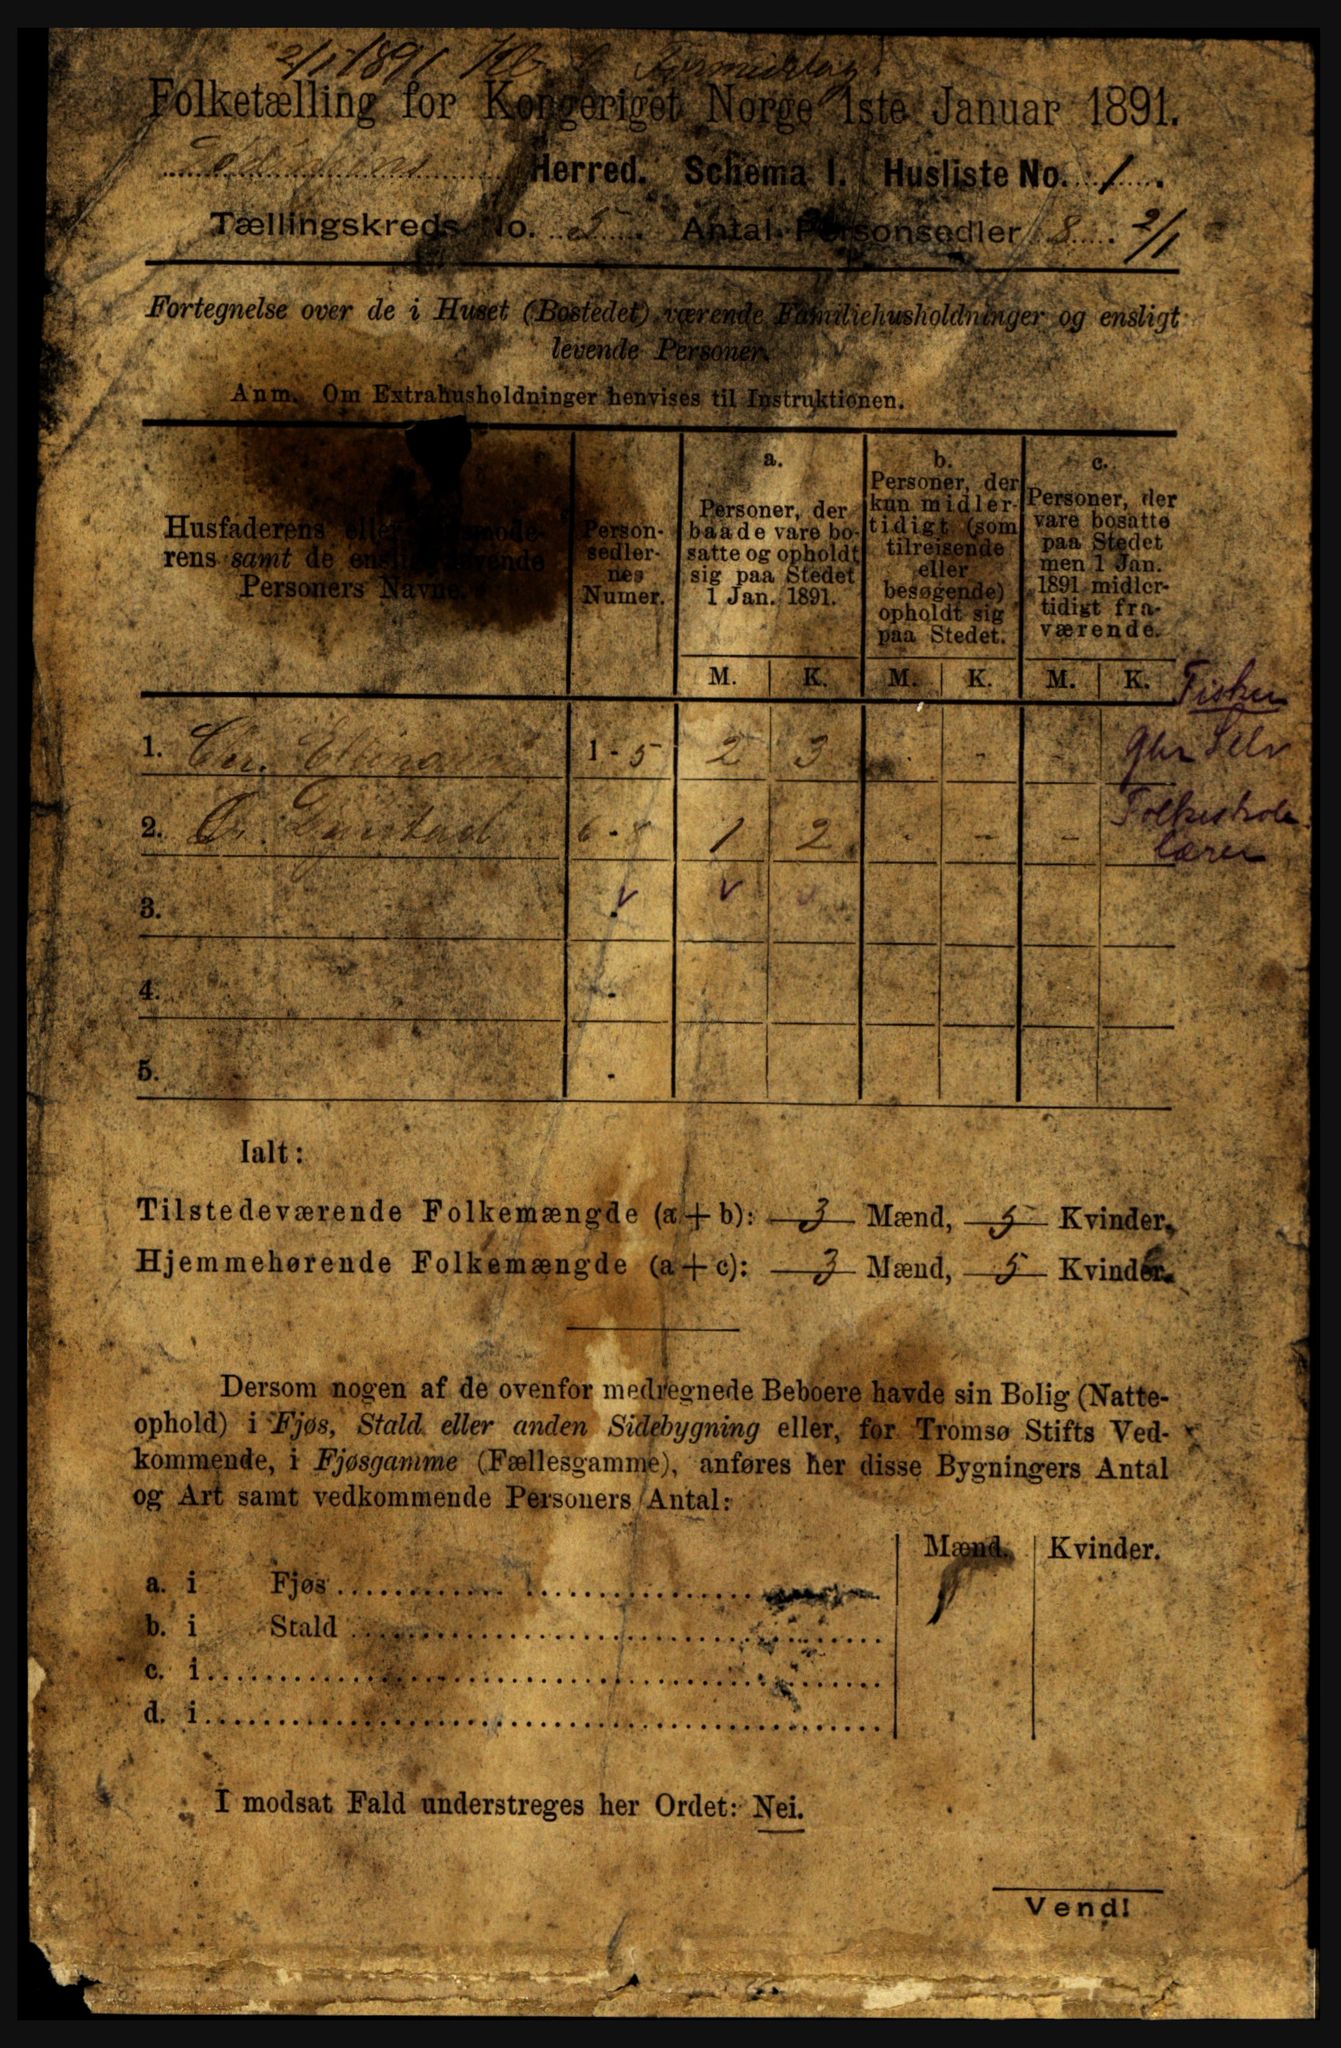 2/1 1891 Kl. 6 Formiddag.
Folketælling for Kongeriget Norge 1ste Januar 1891.
Herred. Schema I. Husliste No. 1.
Tællingskreds No. 5. Antal Personsedler 8. 2/1
Fortegnelse over de i Huset (Bostedet) værende Familiehusholdninger og ensligt
levende Personer.
Anm. Om Extrahusholdninger henvises til Instruktionen.
Husfaderens eller Husmode-
rens samt de ensligt levende
Personers Navne.
Person-
sedler-
nes
Numer.
a.
Personer, der
baade vare bo-
satte og opholdt
sig paa Stedet
1 Jan. 1891.
b.
Personer, der
kun midler-
tidigt (som
tilreisende
eller
besøgende)
opholdt sig
paa Stedet.
c.
Personer, der
vare bosatte
paa Stedet
men 1 Jan.
1891 midler-
tidigt fra-
værende.
M. K. M. K. M. K. Fisker
1. Chr. 1-5 2 3 . - - Selv
2. 6-8 1 2 . - - Folkeskole
lærer
3. . v v v
4. -
5. -
Ialt:
Tilstedeværende Folkemængde (a + b): 3 Mænd, 5 Kvinder.
Hjemmehørende Folkemængde (a + c): 3 Mænd, 5 Kvinder.
Dersom nogen af de ovenfor medregnede Beboere havde sin Bolig (Natte-
ophold) i Fjøs, Stald eller anden Sidebygning eller, for Tromsø Stifts Ved-
kommende, i Fjøsgamme (Fællesgamme), anføres her disse Bygningers Antal
og Art samt vedkommende Personers Antal:
Mænd. Kvinder.
a. i Fjøs
b. i Stald
c. i
d. i
I modsat Fald understreges her Ordet: Nei.
Vend!